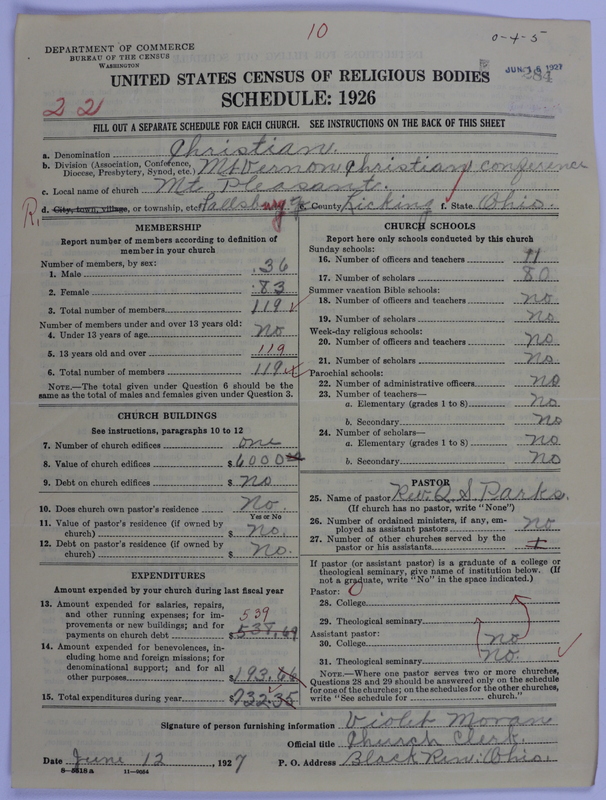 10
0-4-5
DEPARTMENT OF COMMERCE
BUREAU OF THE CENSUS
WASHINGTON
JUN 15 1927
UNITED STATES CENSUS OF RELIGIOUS BODIES
SCHEDULE: 1926
2 2
FILL OUT A SEPARATE SCHEDULE FOR EACH CHURCH. SEE INSTRUCTIONS ON THE BACK OF THIS SHEET
a. Denomination Christian.
b. Division (Association, Conference, Diocese, Presbytery, Synod, etc.) Mt Vernon Christian conference
c. Local name of church Mt. Pleasant.
R. d. City, town, village, or township, etc. e. County Licking f. State Ohio.
MEMBERSHIP
Report number of members according to definition of
member in your church
Number of members, by sex:
1. Male 36
2. Female 83
3. Total number of members 119
Number of members under and over 13 years old:
4. Under 13 years of age no
5. 13 years old and over 119
6. Total number of members 119
NOTE.—The total given under Question 6 should be the
same as the total of males and females given under Question 3.
CHURCH BUILDINGS
See instructions, paragraphs 10 to 12
7. Number of church edifices one
8. Value of church edifices $6000
9. Debt on church edifices $ no
10. Does church own pastor's residence No.
Yes or No
11. Value of pastor's residence (if owned by
church) $ No.
12. Debt on pastor's residence (if owned by
church) $ No.
EXPENDITURES
Amount expended by your church during last fiscal year
13. Amount expended for salaries, repairs,
and other running expenses; for im-
provements or new buildings; and for
payments on church debt $538.69
539
14. Amount expended for benevolences, in-
cluding home and foreign missions; for
denominational support; and for all
other purposes $193.66
15. Total expenditures during year $732.35
CHURCH SCHOOLS
Report here only schools conducted by this church
Sunday schools:
16. Number of officers and teachers 11
17. Number of scholars 80
Summer vacation Bible schools:
18. Number of officers and teachers no
19. Number of scholars no
Week-day religious schools:
20. Number of officers and teachers no
21. Number of scholars no
Parochial schools:
22. Number of administrative officers no
23. Number of teachers—
a. Elementary (grades 1 to 8) no
b. Secondary no
24. Number of scholars—
a. Elementary (grades 1 to 8) no
b. Secondary no
PASTOR
25. Name of pastor Rev. Q. S. Parks.
(If church has no pastor, write "None")
26. Number of ordained ministers, if any, em-
ployed as assistant pastors no
27. Number of other churches served by the
pastor or his assistants
If pastor (or assistant pastor) is a graduate of a college or
theological seminary, give name of institution below. (If
not a graduate, write "No" in the space indicated.)
Pastor:
28. College
29. Theological seminary
Assistant pastor:
30. College no
31. Theological seminary no.
NOTE.—Where one pastor serves two or more churches,
Questions 28 and 29 should be answered only on the schedule
for one of the churches; on the schedules for the other churches,
write "See schedule for church."
Signature of person furnishing information Violet Moran
Official title Church Clerk.
Date June 12, 1927 P. O. Address Black Run: Ohio.
8—5518 a 11—9684